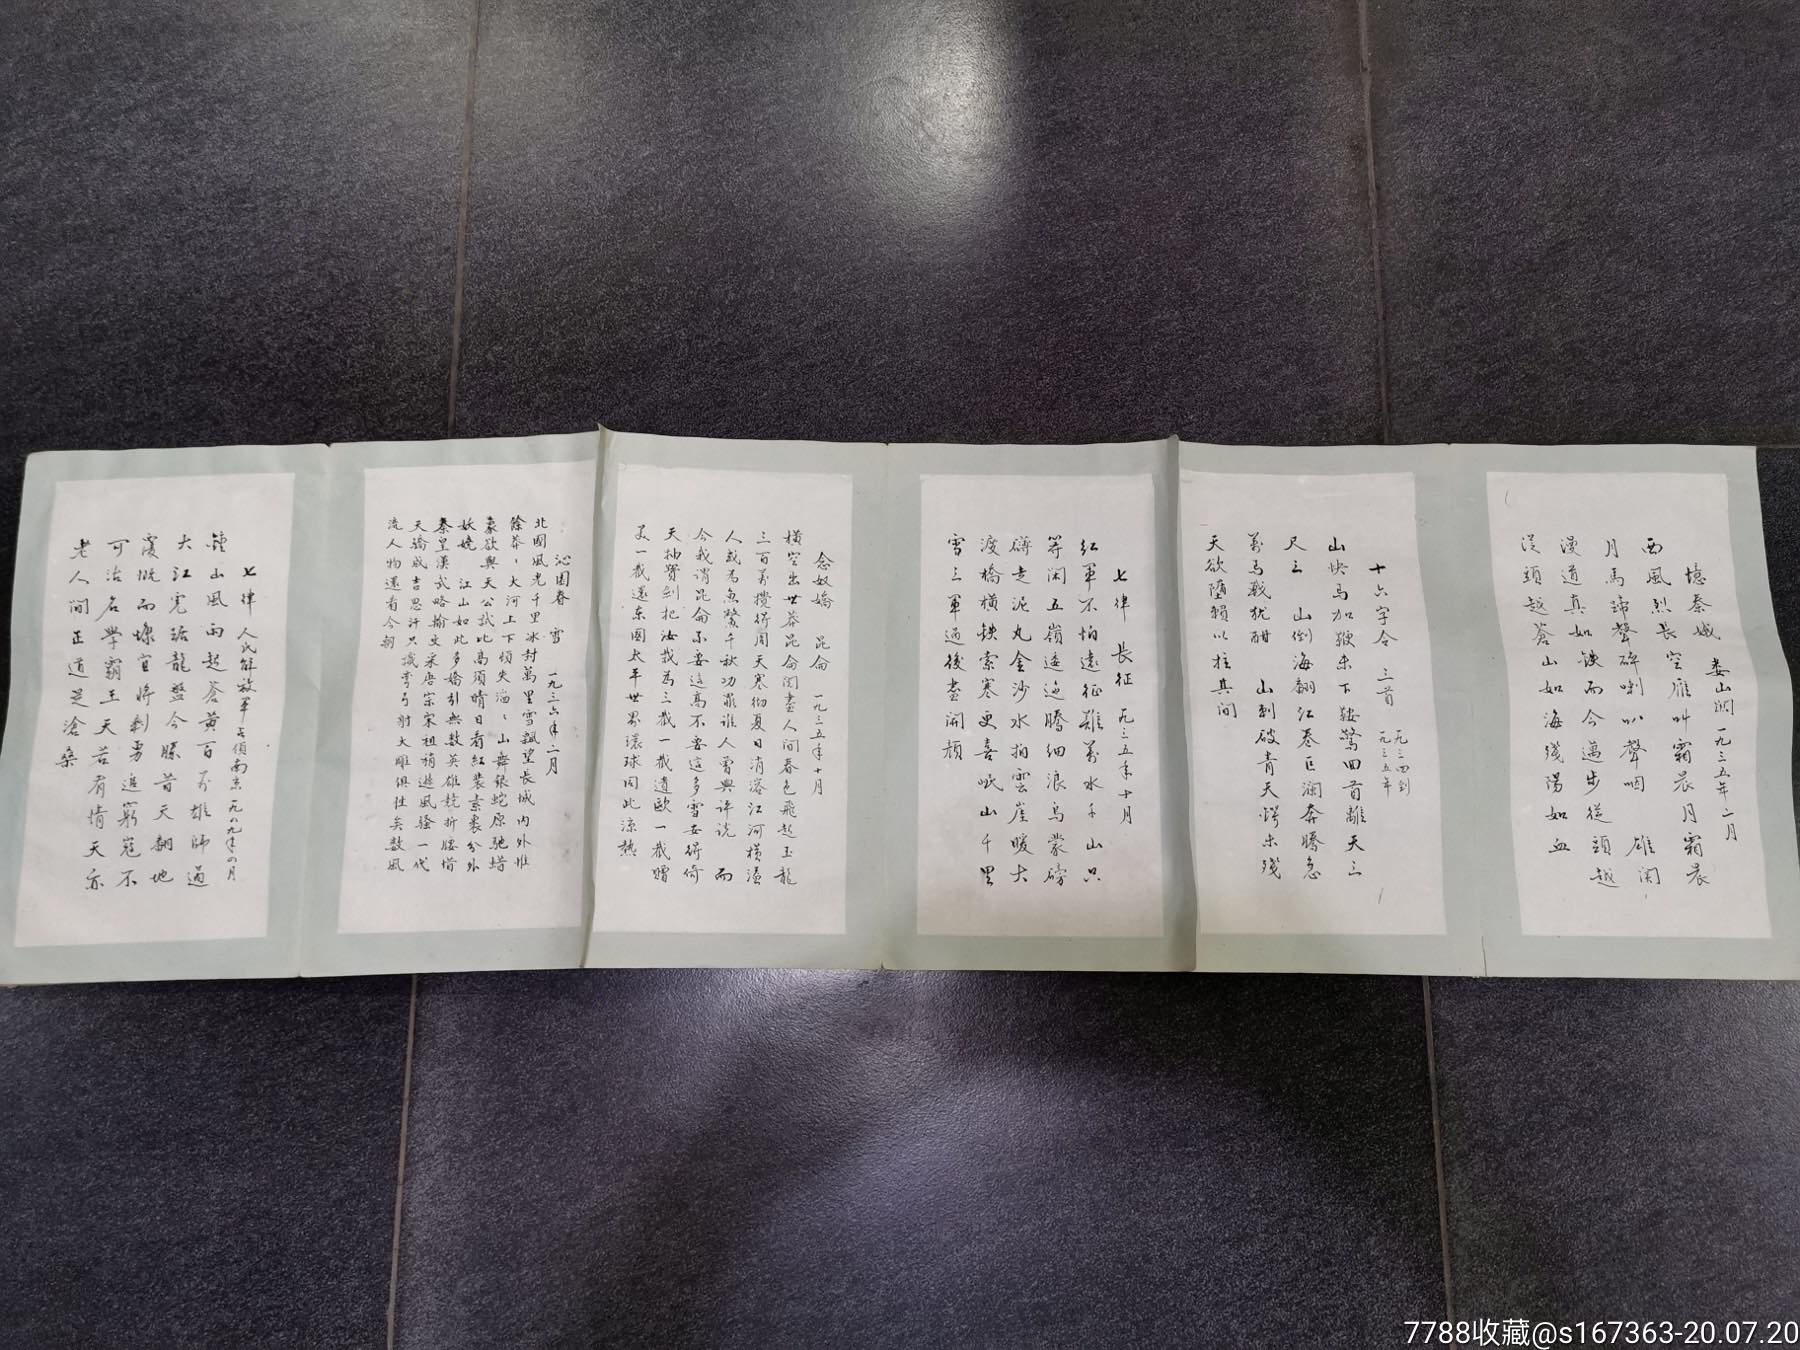 憶秦娥 娄山関 一九三五年二月
西風烈長空雁叫霜晨月霜晨
月馬蹄聲碎喇叭聲咽 雄関
漫道真如鉄而今邁步從頭越
從頭越蒼山如海殘陽如血
十六字令 三首 一九三四到
一九三五年
山快馬加鞭未下鞍驚回首離天三
尺三 山倒海翻江卷巨瀾奔騰急
萬馬戰犹酣 山刺破青天鍔未殘
天欲墮賴以拄其间
七律 長征 一九三五年十月
紅軍不怕遠征難萬水千山只
等闲五嶺逶迤騰细浪烏蒙磅
礴走泥丸金沙水拍雲崖暖大
渡橋横鉄索寒更喜岷山千里
雪三軍过後盡開顏
念奴嬌 昆侖 一九三五年十月
横空出世莽昆侖閲盡人间春色飛起玉龍
三百萬攪得周天寒彻夏日消溶江河横溢
人或為魚鱉千秋功罪谁人曾與评说 而
今我谓昆侖不要這高不要這多雪安得倚
天抽寳劍把汝裁為三截一截遺歐一截贈
美一截還东國太平世界環球同此凉熱
沁园春 雪 一九三六年二月
北國風光千里冰封萬里雪飄望長城内外惟
餘莽、大河上下頓失滔、山舞銀蛇原驰蜡
象欲與天公試比高須晴日看紅装素裹分外
妖嬈 江山如此多嬌引無數英雄競折腰惜
秦皇漢武略輸文采唐宗宋祖稍遜風騷一代
天驕成吉思汗只識弯弓射大雕俱往矣數風
流人物還看今朝
七律 人民解放軍占領南京 一九四九年四月
鍾山風雨起蒼黄百萬雄師過
大江虎踞龍盤今勝昔天翻地
覆慨而慷宜將剩勇追窮寇不
可沽名學霸王天若有情天亦
老人间正道是滄桑
7788收藏@s167363-20.07.20